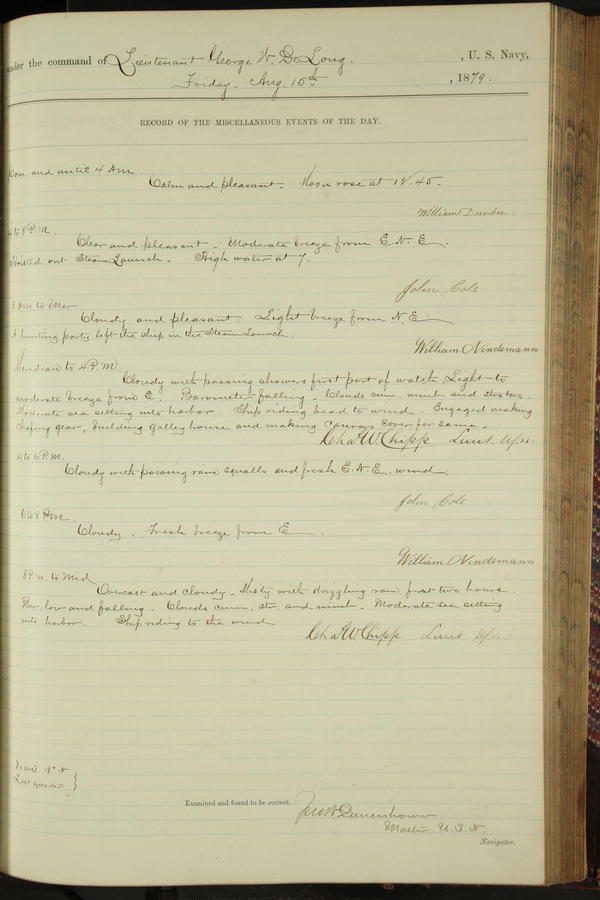 under the command of Lieutenant George W. De Long. , U. S. Navy,
Friday. Aug. 15th , 1879.
RECORD OF THE MISCELLANEOUS EVENTS OF THE DAY.
Com. and until 4 A.M.
Calm and pleasant. Moon rose at 12.45.
William Dunbar
4 to 8 P.M.
Clear and pleasant. Moderate breeze from E.N.E.
Hoisted out Steam Launch. High water at 7.
John Cole
to Mer
Cloudy and pleasant. Light breeze from N.E.
A hunting party left the ship in the Steam Launch.
William Nindemann
Meridian to 4 P.M.
Cloudy with passing showers first part of watch. Light to
moderate breeze from E. Barometer falling. Clouds cum. nimb. and stratus.
Moderate sea setting into harbor. Ship riding head to wind. Engaged making
chafing gear, building galley house and making canvas cover for same.
Chas W. Chipp Lieut.
4 to 6 P.M.
Cloudy with passing rain squalls and fresh E.N.E. wind
John Cole
6 to 8 P.M.
Cloudy. Fresh breeze from E.
William Nindemann
8 P.M. to Mid
Overcast and cloudy. Misty with drizzling rain first two hours.
Bar low and falling. Clouds cum. str. and nimb. Moderate sea setting
into harbor. Ship riding to the wind
Chas W. Chipp Lieut.
18° N
Last Quarter }
Examined and found to be correct. Jno W Danenhower
Master. U.S.N.
Navigator.